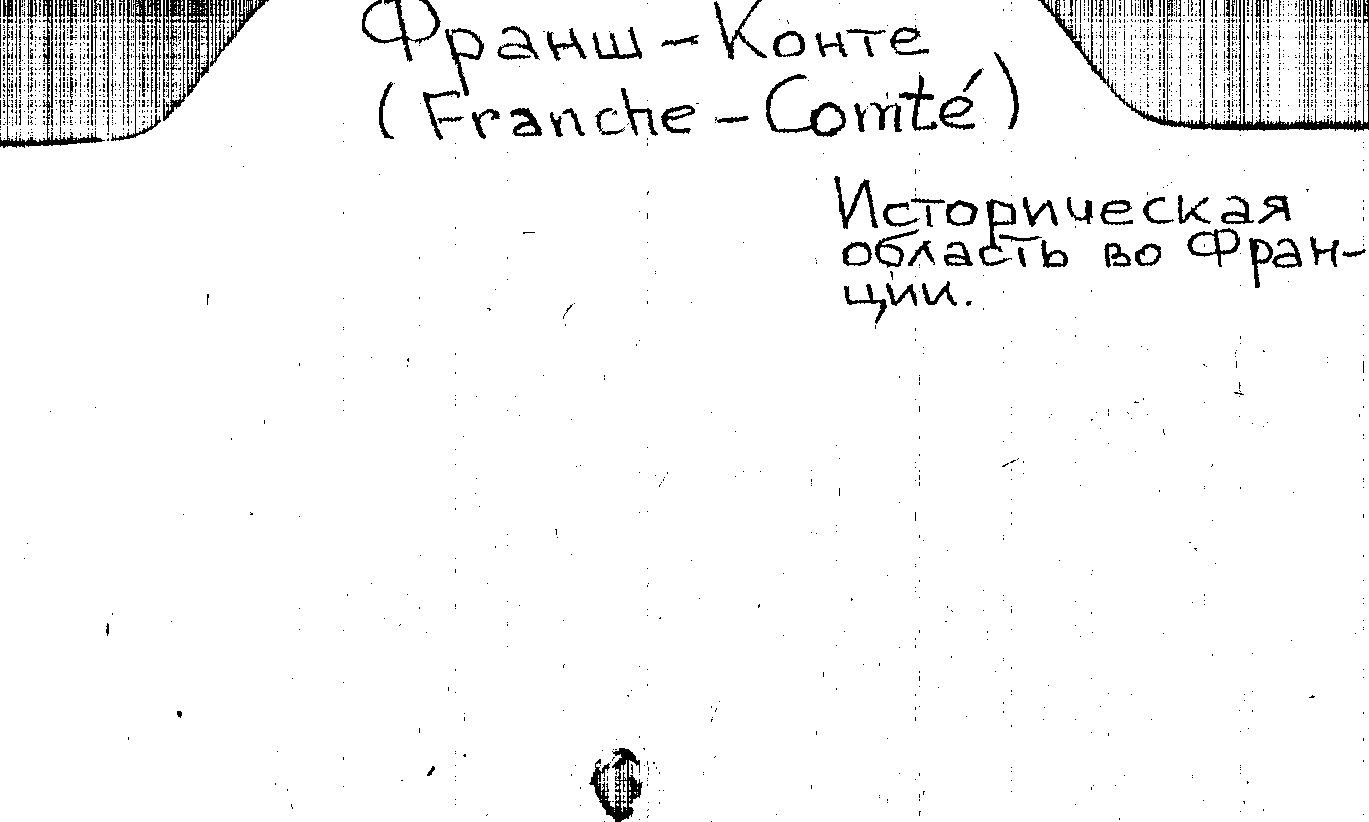 Франш - Конте
(Franche - Comté)
Историческая
область во Фран-
ции.